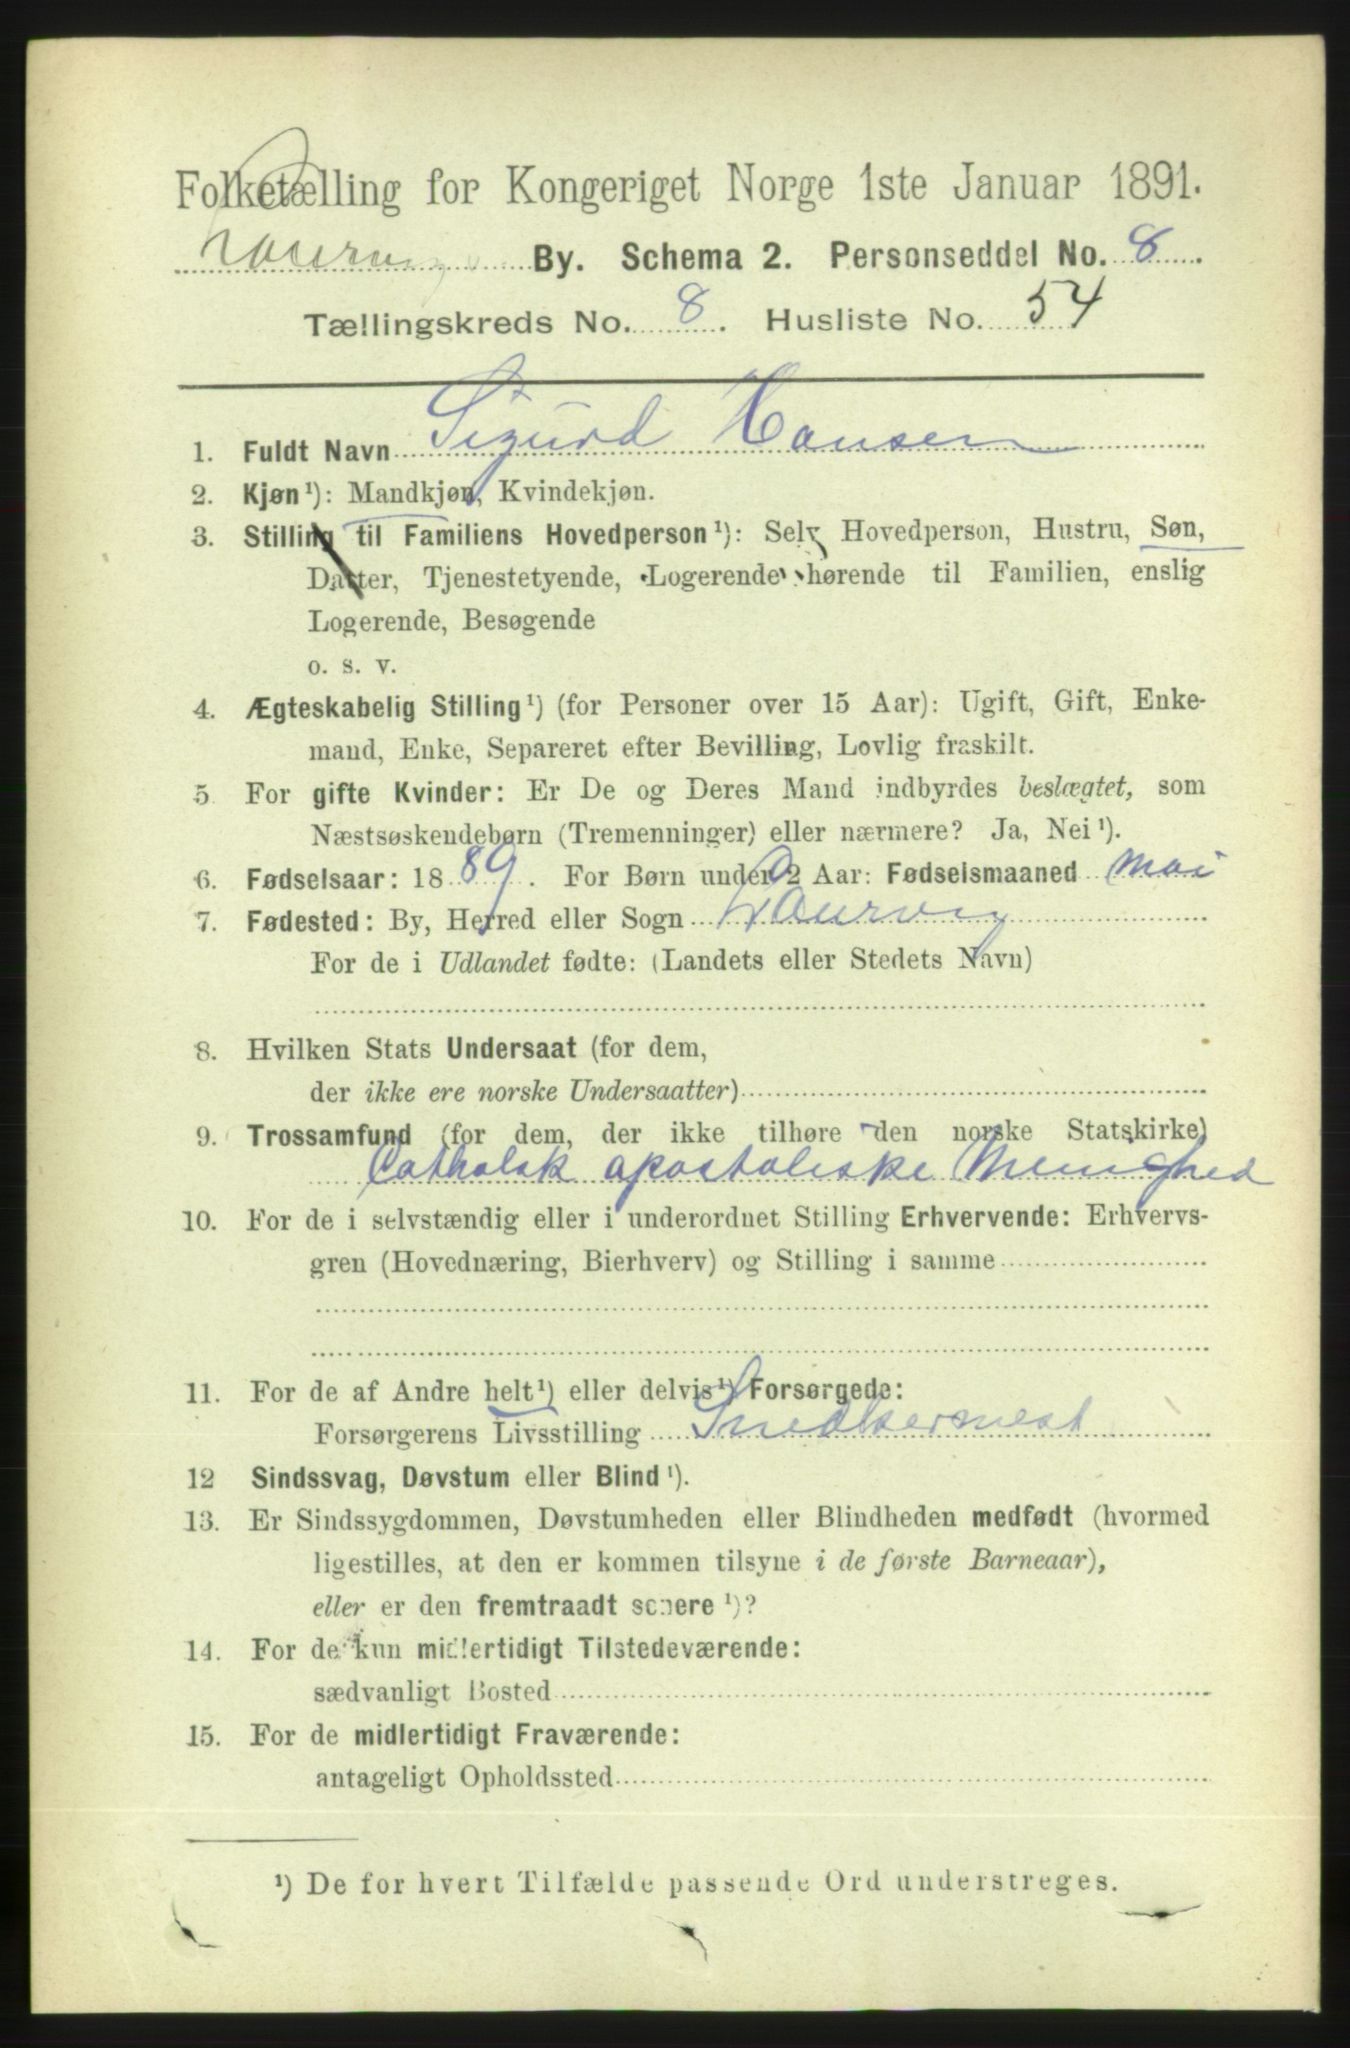 Folketælling for Kongeriget Norge 1ste Januar 1891.
Laurvig By. Schema 2. Personseddel No. 8.
Tællingskreds No. 8. Husliste No. 54
1. Fuldt Navn Sigurd Hansen
2. Kjøn¹): Mandkjøn, Kvindekjøn.
3. Stilling til Familiens Hovedperson¹): Selv Hovedperson, Hustru, Søn,
Datter, Tjenestetyende, Logerende hørende til Familien, enslig
Logerende, Besøgende
o. s. v.
4. Ægteskabelig Stilling¹) (for Personer over 15 Aar): Ugift, Gift, Enke-
mand, Enke, Separeret efter Bevilling, Lovlig fraskilt.
5 For gifte Kvinder: Er De og Deres Mand indbyrdes beslægtet, som
Næstsøskendebørn (Tremenninger) eller nærmere? Ja, Nei¹).
6. Fødselsaar: 1889. For Børn under 2 Aar: Fødselsmaaned Mai
7. Fødested: By, Herred eller Sogn Laurvig
For de i Udlandet fødte: (Landets eller Stedets Navn)
8. Hvilken Stats Undersaat (for dem,
der ikke ere norske Undersaatter)
9. Trossamfund (for dem, der ikke tilhøre den norske Statskirke)
Catholsk apostoliske Menighed
10. For de i selvstændig eller i underordnet Stilling Erhvervende: Erhvervs-
gren (Hovednæring, Bierhverv) og Stilling i samme
11. For de af Andre helt¹) eller delvis¹) Forsørgede:
Forsørgerens Livsstilling Snedkermest
12 Sindssvag, Døvstum eller Blind¹).
13. Er Sindssygdommen, Døvstumheden eller Blindheden medfødt (hvormed
ligestilles, at den er kommen tilsyne i de første Barneaar),
eller er den fremtraadt senere¹)?
14. For de kun midlertidigt Tilstedeværende:
sædvanligt Bosted
15. For de midlertidigt Fraværende:
antageligt Opholdssted
¹) De for hvert Tilfælde passende Ord understreges.